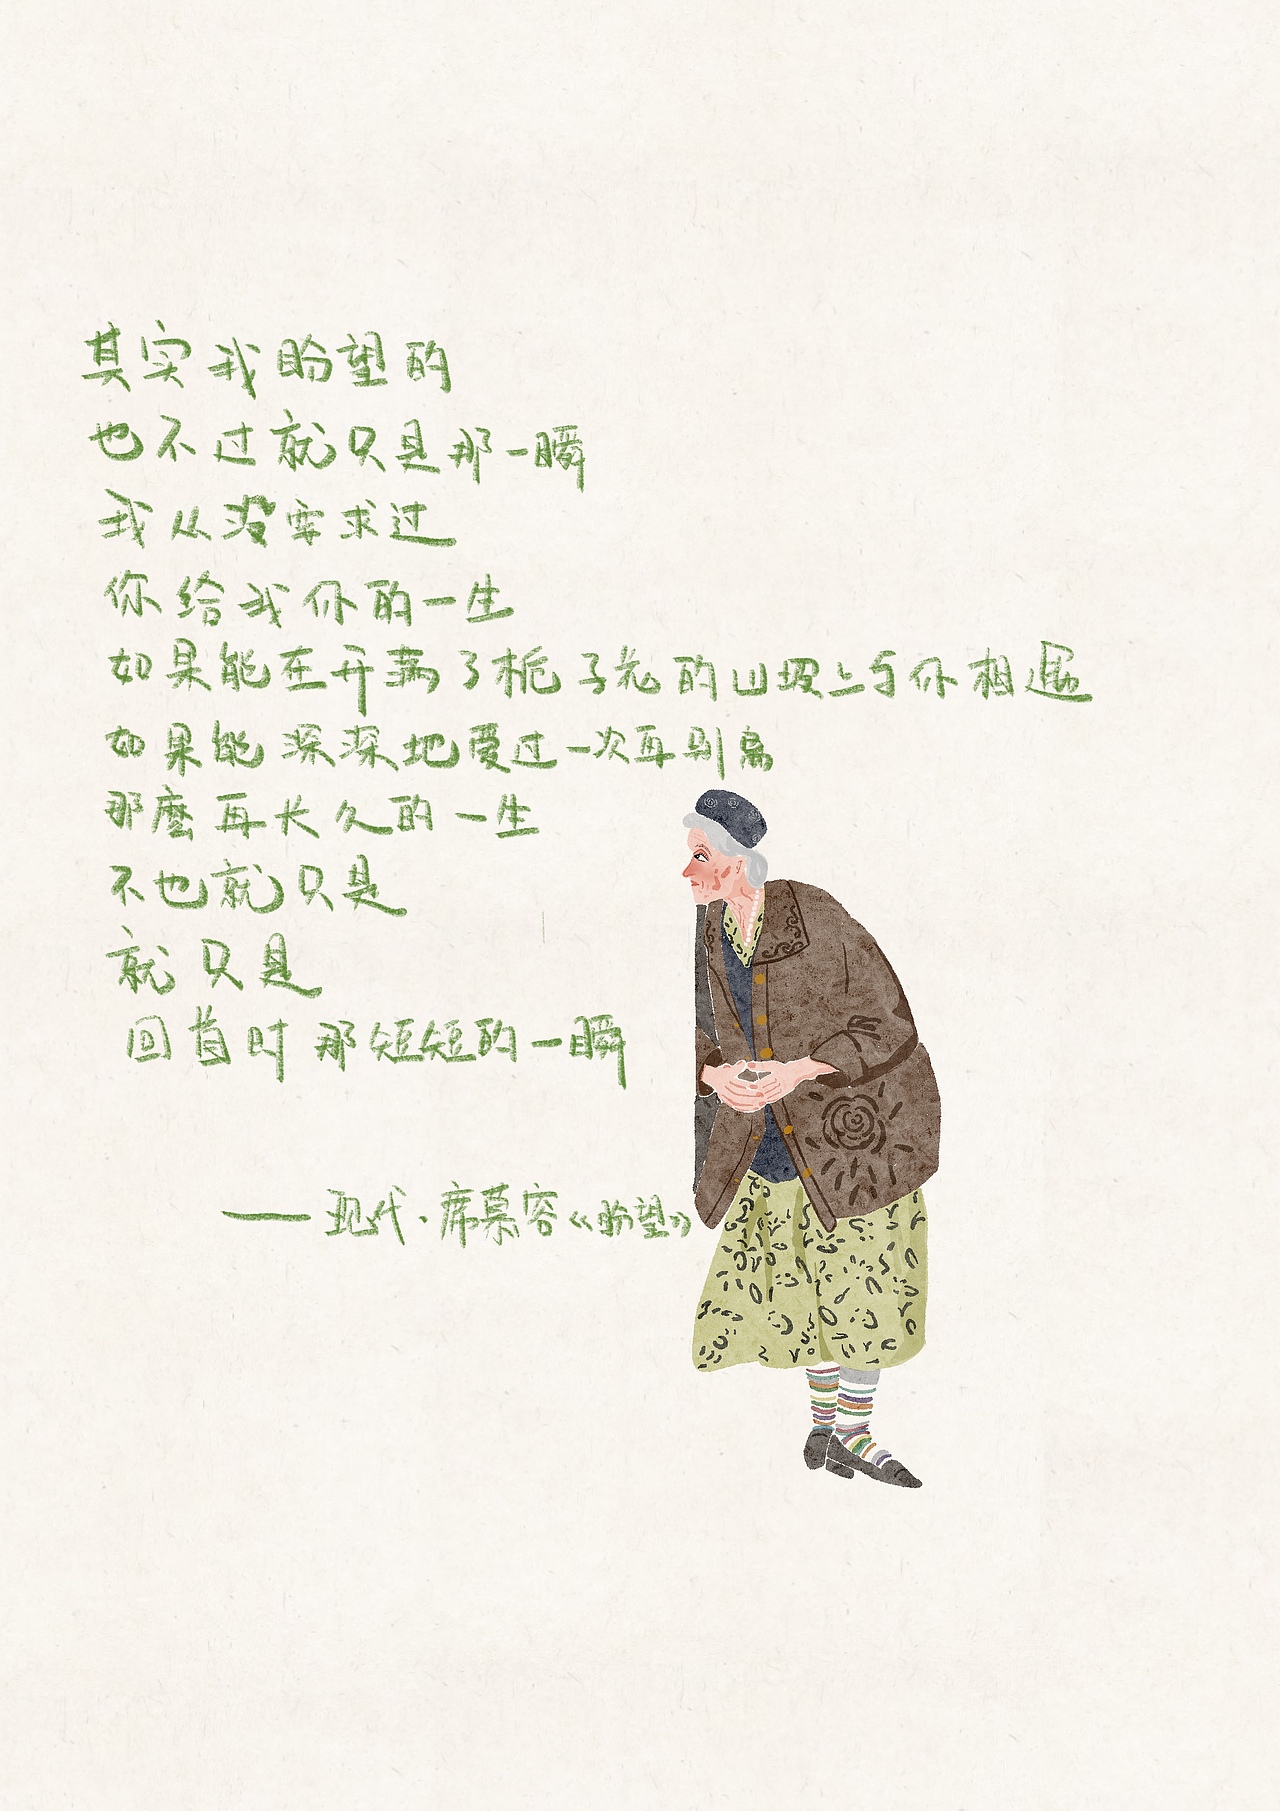 其实我盼望的
也不过就只是那一瞬
我从没要求过
你给我你的一生
如果能在开满了栀子花的山坡上与你相遇
如果能深深地爱过一次再别离
那麼再长久的一生
不也就只是
就只是
回首时那短短的一瞬
——现代·席慕容《盼望》